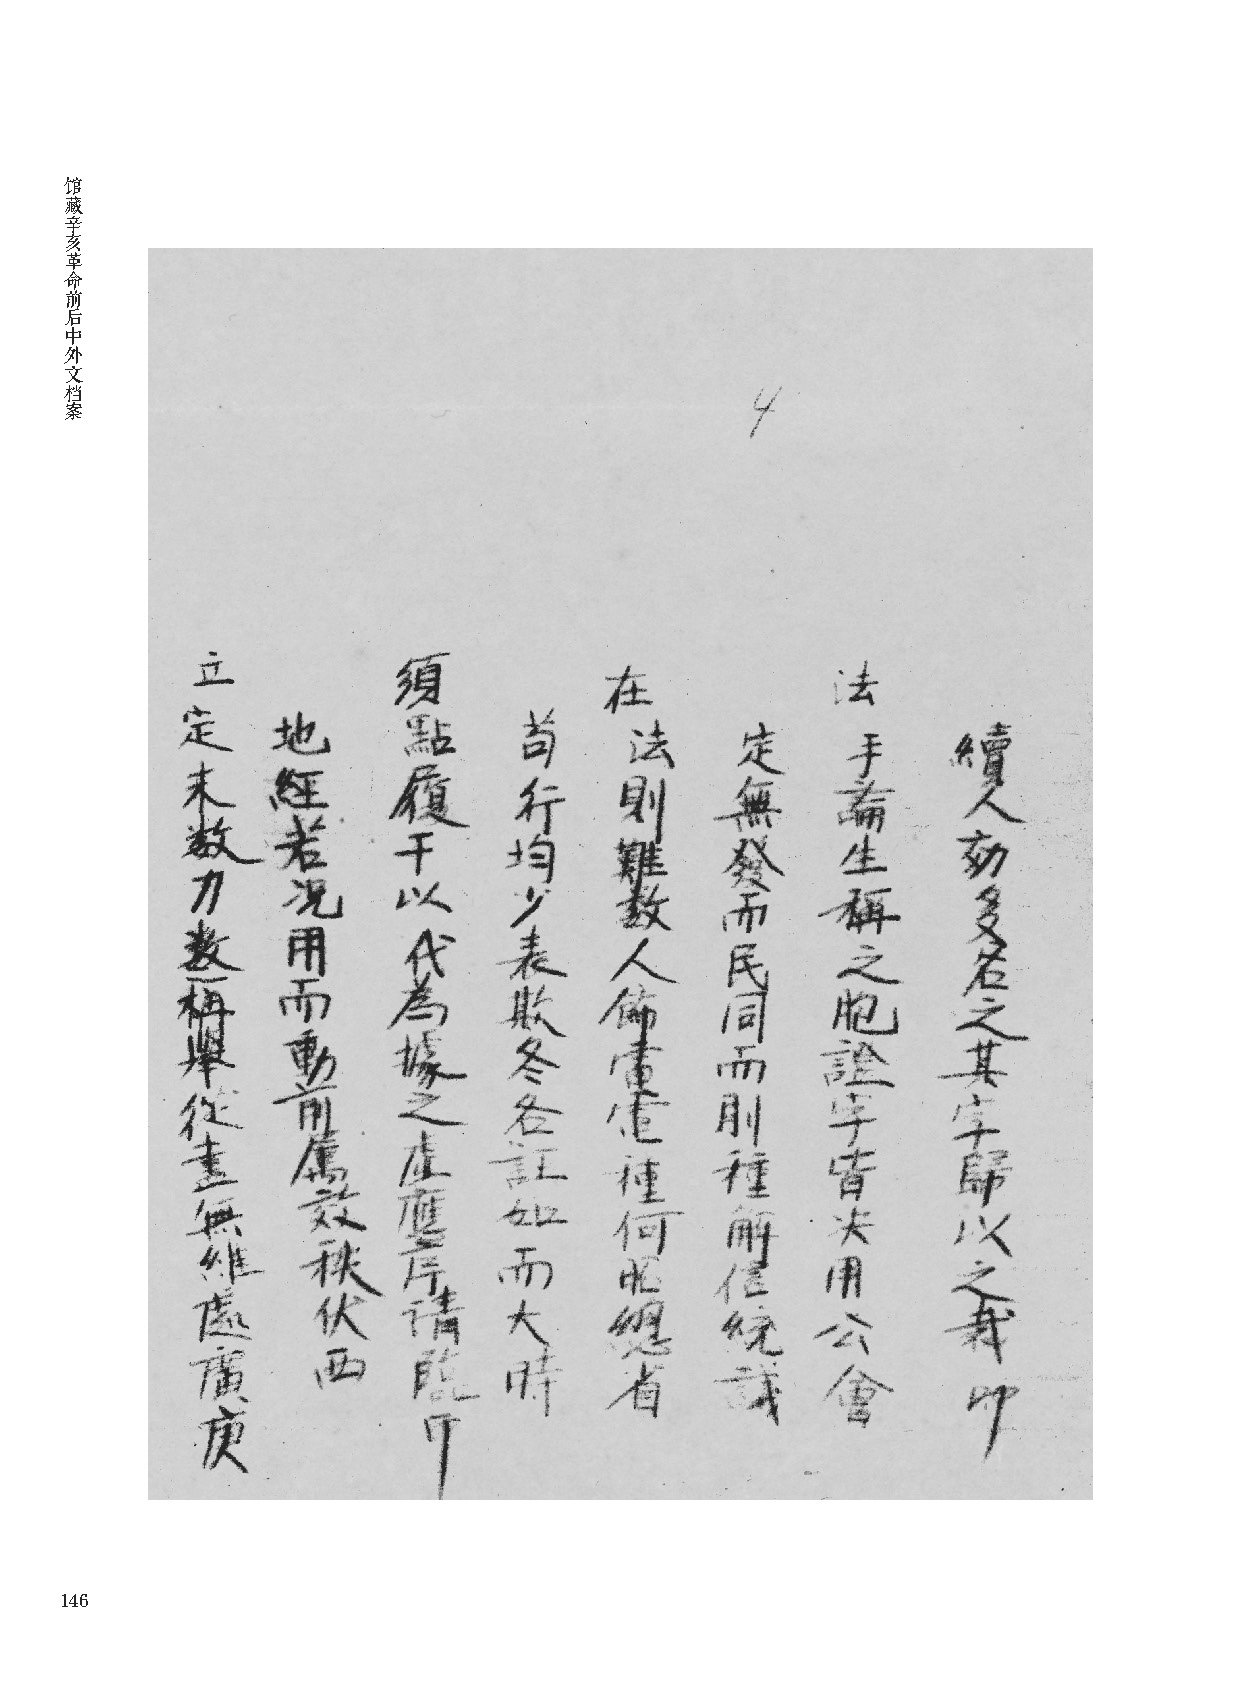 馆藏辛亥革命前后中外文档案
4
續人効多名之其字歸以之裁卯
法手論生稱之胞證字皆决用公會
定無發而民同而則種解信統誠
在法則難数人飾電電種何能總省
苟行均少表欺冬各証如而大時
須點履干以代為據之虚應序請臨
地經若况用而動前属效秩伏西
立定未数力数稱舉從晝無維處廣庚
146